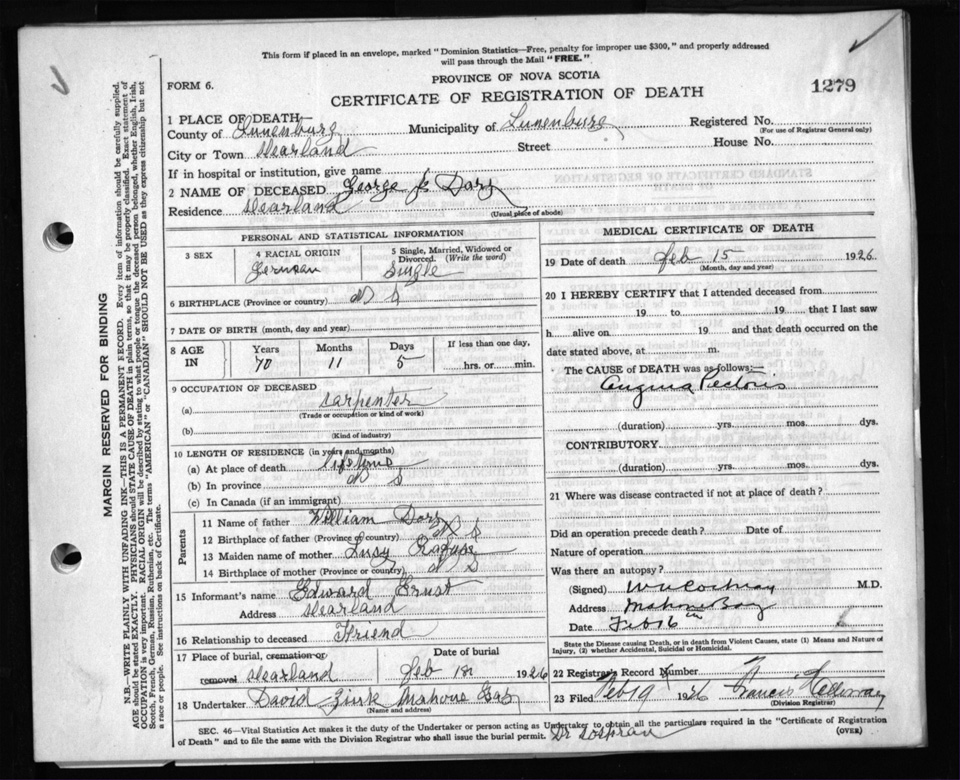 This form if placed in an envelope, marked "Dominion Statistics—Free, penalty for improper use $300," and properly addressed
will pass through the Mail "FREE."
PROVINCE OF NOVA SCOTIA
FORM 6.
1279
CERTIFICATE OF REGISTRATION OF DEATH
1 PLACE OF DEATH—
County of Lunenburg Municipality of Lunenburg Registered No.
(For use of Registrar General only)
City or Town Street House No.
If in hospital or institution, give name
2 NAME OF DECEASED George
Residence
(Usual place of abode)
PERSONAL AND STATISTICAL INFORMATION
3 SEX
4 RACIAL ORIGIN
German
5 Single, Married, Widowed or Divorced. (Write the word)
Single
6 BIRTHPLACE (Province or country) N S
7 DATE OF BIRTH (month, day and year)
8 AGE IN
Years Months Days If less than one day,
70 11 5 hrs. or min.
9 OCCUPATION OF DECEASED
(a) Carpenter
(Trade or occupation or kind of work)
(b)
(Kind of industry)
10 LENGTH OF RESIDENCE (in years and months)
(a) At place of death
(b) In province N S
(c) In Canada (if an immigrant)
Parents
11 Name of father William
12 Birthplace of father (Province or country) N S
13 Maiden name of mother Lucy
14 Birthplace of mother (Province or country) N S
15 Informant's name Edward Ernst
Address
16 Relationship to deceased Friend
17 Place of burial, cremation or removal
Date of burial
Feb 18 1926
18 Undertaker David Zink Mahone Bay
(Name and address)
MEDICAL CERTIFICATE OF DEATH
19 Date of death Feb 15 1926.
(Month, day and year)
20 I HEREBY CERTIFY that I attended deceased from
19 to 19 that I last saw
h alive on 19 and that death occurred on the
date stated above, at m.
The CAUSE OF DEATH was as follows:—
Angina Pectoris
(duration) yrs. mos. dys.
CONTRIBUTORY
(duration) yrs. mos. dys.
21 Where was disease contracted if not at place of death?
Did an operation precede death? Date of
Nature of operation
Was there an autopsy?
(Signed) W A Cochran M.D.
Address Mahone Bay
Date Feb 16th
State the Disease causing Death, or in death from Violent Causes, state (1) Means and Nature of
Injury, (2) whether Accidental, Suicidal or Homicidal.
22 Registrar's Record Number
23 Filed Feb 19 1926 Francis
(Division Registrar)
SEC. 46—Vital Statistics Act makes it the duty of the Undertaker or person acting as Undertaker to obtain all the particulars required in the "Certificate of Registration
of Death" and to file the same with the Division Registrar who shall issue the burial permit.
Dr Cochran
(OVER)
MARGIN RESERVED FOR BINDING
N.B.—WRITE PLAINLY WITH UNFADING INK—THIS IS A PERMANENT RECORD. Every item of information should be carefully supplied.
AGE should be stated EXACTLY. PHYSICIANS should STATE CAUSE OF DEATH in plain terms, so that it may be properly classified. Exact statement of
OCCUPATION is very important. RACIAL ORIGIN will be described by stating to what people or tongue the deceased person belonged, whether English, Irish,
Scotch, French, German, Russian, Ruthenian, etc. The terms "AMERICAN" or "CANADIAN" SHOULD NOT BE USED as they express citizenship but not
a race or people. See instructions on back of Certificate.